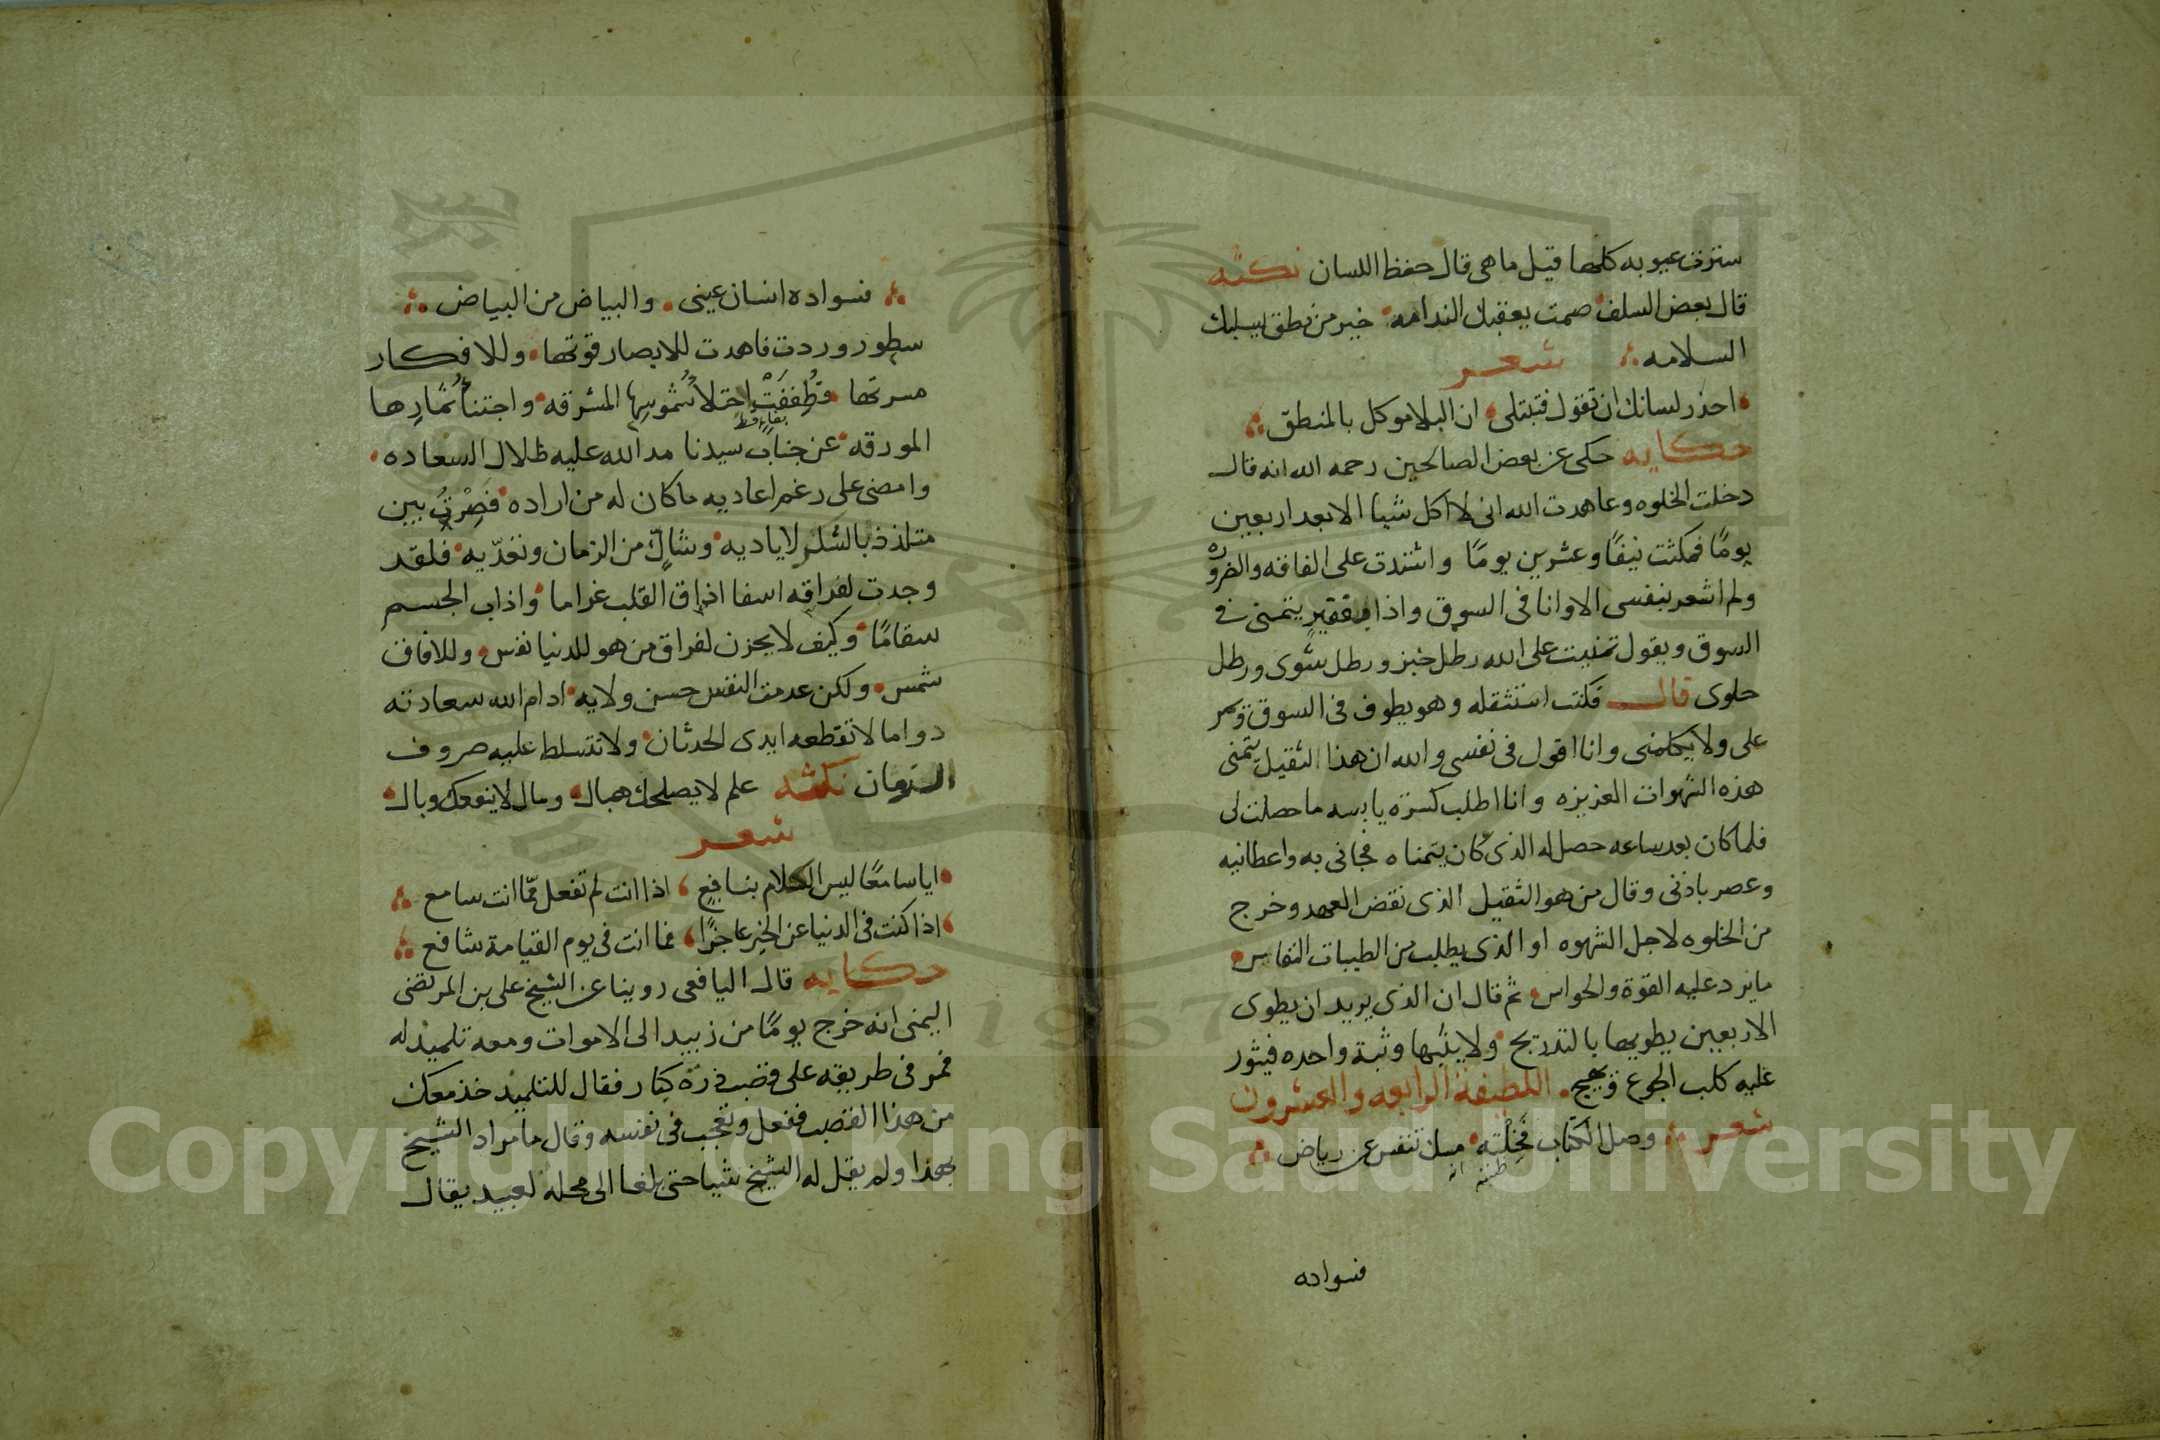 سترت عيوبه كلها قيل ما هى قال حفظ اللسان نكته
قال بعض السلف صمت يعقبك الندامه خير من نطق يسلبك
السلامه شعر
احذر لسانك ان تقول فتبتلى ان البلا موكل بالمنطق
حكايه حكى عن بعض الصالحين رحمه الله انه قال
دخلت الخلوه وعاهدت الله انى لا اكل شيا الا بعد اربعين
يومًا فمكثت نيفًا وعشرين يومًا واشتدت على الفاقه والضروره
ولم اشعر بنفسى الا وانا فى السوق واذا بفقير يتمنى فى
السوق ويقول تمنيت على الله رطل خبز ورطل شوى ورطل
حلوى قال فكنت استثقله وهو يطوف فى السوق ويمر
على ولا يكلمنى وانا اقول فى نفسى والله ان هذا الثقيل يتمنى
هذه الشهوات العزيزه وانا اطلب كسرة يابسه ما حصلت لى
فلما كان بعد ساعه حصل له الذى كان يتمناه فجانى به واعطانيه
وعصر باذنى وقال من هو الثقيل الذى نقض العهد وخرج
من الخلوه لاجل الشهوه او الذى يطلب من الطيبات النفايس
ما يرد عليه القوة والحواس ثم قال ان الذى يريد ان يطوى
الاربعين يطويها بالتدريج ولا يثبها وثبة واحده فيثور
عليه كلب الجوع ويهيج اللطيفة الرابعه والعشرون
شعر وصل الكتاب فخلته مسك تنفس عن رياض
ظننته انه
فسواده
فسواده انسان عينى والبياض من البياض
سطور وردت فاهدت للابصار قوتها وللافكار
مسرتها قطففت اجتلا شموسها المشرقه واجتنا ثمارها
المورقه عن جناب سيدنا مد الله عليه ظلال السعاده
وامضى على رغم اعاديه ما كان له من اراده فصرت بين
متلذذ بالشكر لاياديه وشاكٍ من الزمان وتعديه فلقد
وجدت لفراقه اسفا اذاق القلب غراما واذاب الجسم
سقامًا وكيف لا يحزن لفراق من هو للدنيا نفس وللافاق
شمس ولكن عدمت النفس حسن ولايه ادام الله سعادته
دواما لا تقطعه ايدى الحدثان ولا تتسلط عليه صروف
الزمان نكته علم لا يصلحك هبال ومال لا ينفعك وبال
شعر
ايا سامعًا ليس الكلام بنافعٍ اذا انت لم تفعل فما انت سامع
اذا كنت فى الدنيا عن الخير عاجزًا فما انت فى يوم القيامة شافع
حكايه قال اليافعى روينا عن الشيخ على بن المرتضى
اليمنى انه خرج يومًا من زبيد الى الاموات ومعه تلميذ له
فمر فى طريقه على قصب ذرة كبار فقال للتلميذ خذ معك
من هذا القصب ففعل وتعجب فى نفسه وقال ما مراد الشيخ
بهذا ولم يقل له الشيخ شيا حتى بلغا الى محلة لعبيد يقال
Copyright © King Saud University
1957